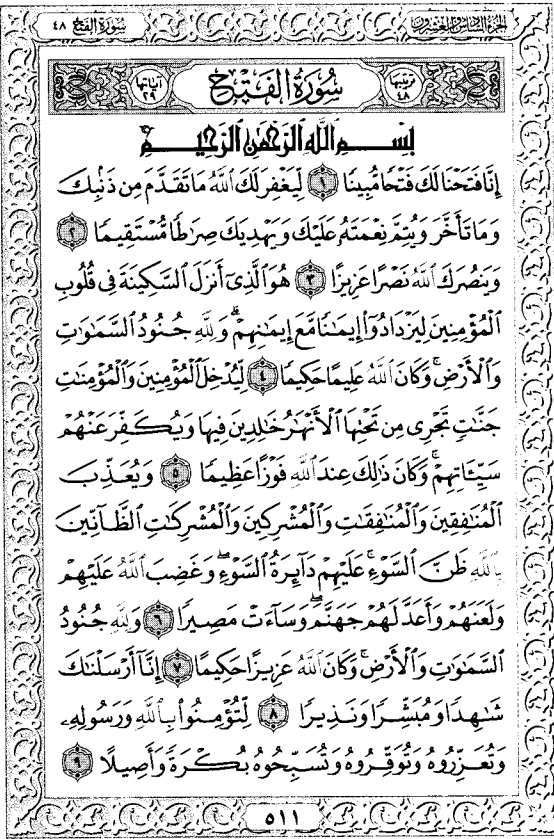 سُورَةُ الفَتْحِ ٤٨
الجزء السادس والعشرون
ترتيبها ٤٨
سُورَةُ الفَتْحِ
آياتها ٢٩
بِسْمِ ٱللَّهِ ٱلرَّحْمَٰنِ ٱلرَّحِيمِ
إِنَّا فَتَحْنَا لَكَ فَتْحًا مُّبِينًا ١ لِّيَغْفِرَ لَكَ ٱللَّهُ مَا تَقَدَّمَ مِن ذَنۢبِكَ
وَمَا تَأَخَّرَ وَيُتِمَّ نِعْمَتَهُۥ عَلَيْكَ وَيَهْدِيَكَ صِرَٰطًا مُّسْتَقِيمًا ٢
وَيَنصُرَكَ ٱللَّهُ نَصْرًا عَزِيزًا ٣ هُوَ ٱلَّذِىٓ أَنزَلَ ٱلسَّكِينَةَ فِى قُلُوبِ
ٱلْمُؤْمِنِينَ لِيَزْدَادُوٓا۟ إِيمَٰنًا مَّعَ إِيمَٰنِهِمْ ۗ وَلِلَّهِ جُنُودُ ٱلسَّمَٰوَٰتِ
وَٱلْأَرْضِ ۚ وَكَانَ ٱللَّهُ عَلِيمًا حَكِيمًا ٤ لِّيُدْخِلَ ٱلْمُؤْمِنِينَ وَٱلْمُؤْمِنَٰتِ
جَنَّٰتٍ تَجْرِى مِن تَحْتِهَا ٱلْأَنْهَٰرُ خَٰلِدِينَ فِيهَا وَيُكَفِّرَ عَنْهُمْ
سَيِّـَٔاتِهِمْ ۚ وَكَانَ ذَٰلِكَ عِندَ ٱللَّهِ فَوْزًا عَظِيمًا ٥ وَيُعَذِّبَ
ٱلْمُنَٰفِقِينَ وَٱلْمُنَٰفِقَٰتِ وَٱلْمُشْرِكِينَ وَٱلْمُشْرِكَٰتِ ٱلظَّآنِّينَ
بِٱللَّهِ ظَنَّ ٱلسَّوْءِ ۚ عَلَيْهِمْ دَآئِرَةُ ٱلسَّوْءِ ۖ وَغَضِبَ ٱللَّهُ عَلَيْهِمْ
وَلَعَنَهُمْ وَأَعَدَّ لَهُمْ جَهَنَّمَ ۖ وَسَآءَتْ مَصِيرًا ٦ وَلِلَّهِ جُنُودُ
ٱلسَّمَٰوَٰتِ وَٱلْأَرْضِ ۚ وَكَانَ ٱللَّهُ عَزِيزًا حَكِيمًا ٧ إِنَّآ أَرْسَلْنَٰكَ
شَٰهِدًا وَمُبَشِّرًا وَنَذِيرًا ٨ لِّتُؤْمِنُوا۟ بِٱللَّهِ وَرَسُولِهِۦ
وَتُعَزِّرُوهُ وَتُوَقِّرُوهُ وَتُسَبِّحُوهُ بُكْرَةً وَأَصِيلًا ٩
٥١١